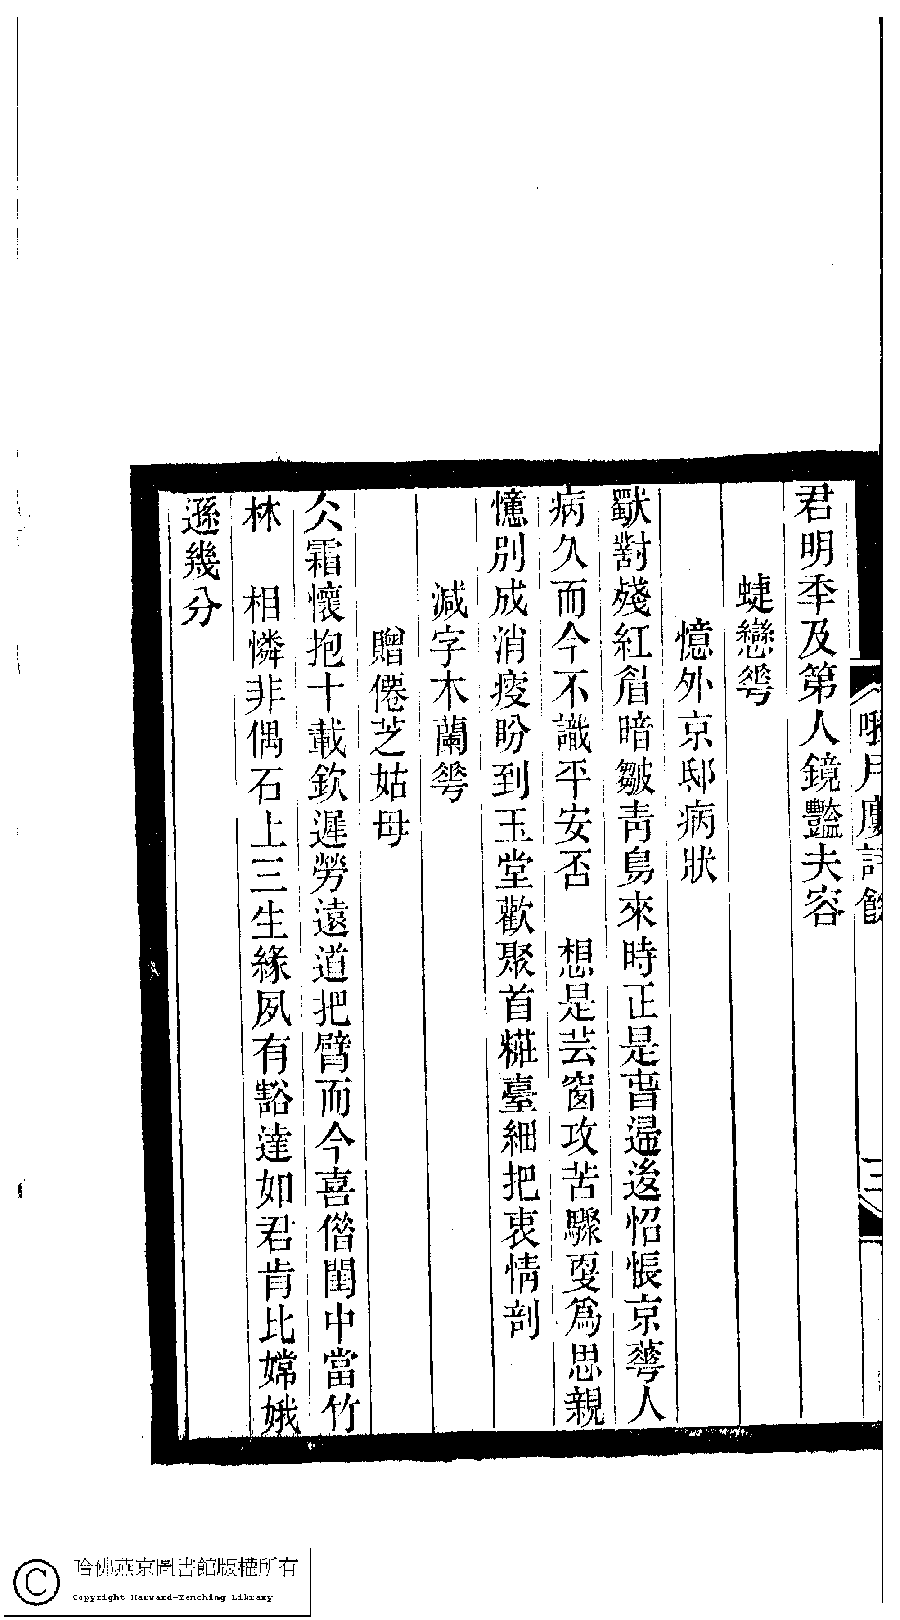 月
詩餘
三
君明季及第人鏡豔夫容
蜨戀𠌶
憶外京邸病狀
獃對殘紅眉暗皺青鳥來時正是萅歸後怊悵京蕐人
病久而今不識平安否　想是芸窗攻苦驟更爲思親
憶別成消瘦盼到玉堂歡聚首糚臺細把衷情剖
減字木蘭𠌶
贈僊芝姑母
仌霜懷抱十載欽遲勞遠道把臂而今喜偕閨中當竹
林　相憐非偶石上三生緣夙有豁達如君肯比嫦娥
遜幾分
哈佛燕京圖書館版權所有
Copyright Harvard-Yenching Library